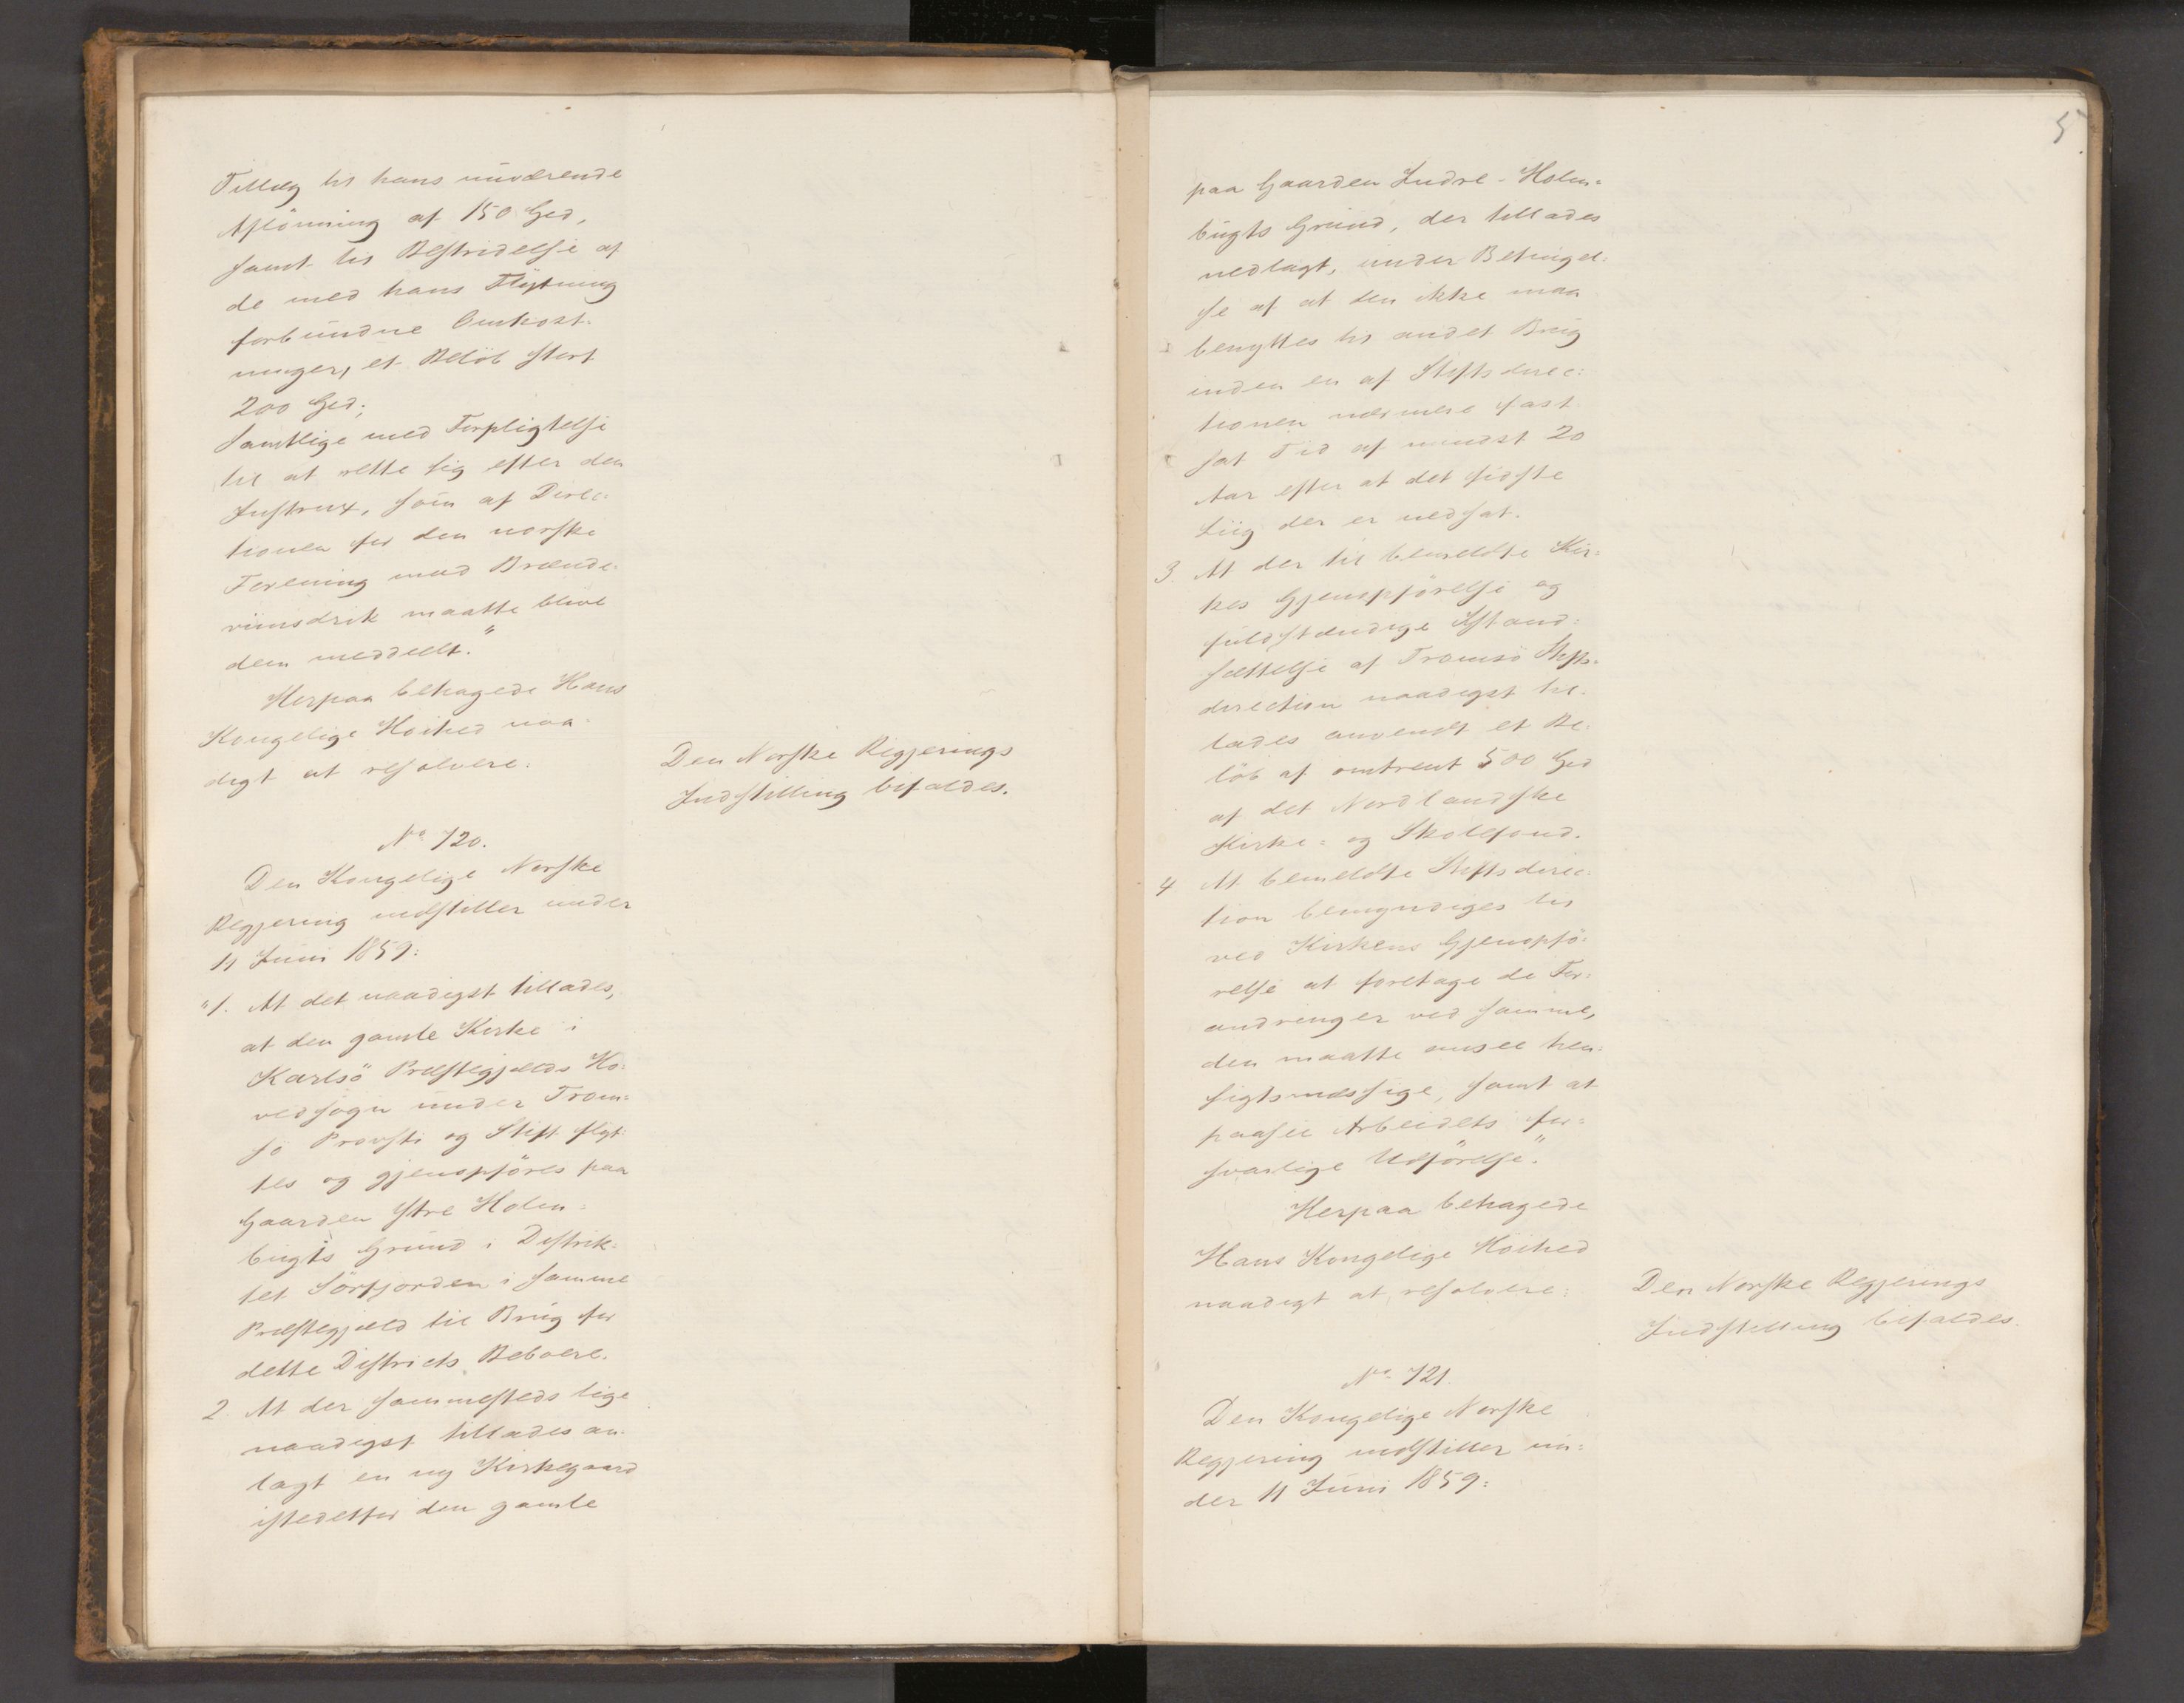 Tillæg til hans nuværende
Aflönning af 150 Spd,
samt til Bestridelse af
de med hans Flytning
forbundne Omkost-
ninger, et Belöb stort
200 Spd;
Samtlige med Forpligtelse
til at rette sig efter den
Instrux, som af Direc-
tionen for den norske
Forening mod Brænde-
viinsdrik maatte blive
dem meddeelt."
Herpaa behagede Hans
Kongelige Höihed naa-
digt at resolvere:
Den Norske Regjerings
Indstilling bifaldes.
No 720.
Den Kongelige Norske
Regjering indstiller under
11 Juni 1859:
"1. At det naadigst tillades,
at den gamle Kirke i
Karlsö Præstegjælds Ho-
vedsogn under Trom-
sö Provsti og Stift flyt-
tes og gjenopföres paa
Gaarden Ytre Holm-
bugts Grund i Distrik-
tet Sörfjorden i samme
Præstegjæld til Brug for
dette Districts Beboere.
2. At der sammesteds lige
naadigst tillades an-
lagt en ny Kirkegaard
istedetfor den gamle
5
paa Gaarden Indre-Holm-
bugts Grund, der tillades
nedlagt, under Betingel-
se af at den ikke maa
benyttes til andet Brug
inden en af Stiftsdirec-
tionen nærmere fast
sat Tid af mindst 20
Aar efter at det sidste
Liig der er nedsat.
3. At der til bemeldte Kir-
kes Gjenopförelse og
fuldstændige Istand-
sættelse af Tromsö Stifts-
direction naadigst til-
lades anvendt et Be-
löb af omtrent 500 Spd
af det Nordlandske
Kirke- og Skolefond.
4 At bemeldte Stiftsdirec-
tion bemyndiges til
ved Kirkens Gjenopfö-
relse at foretage de For-
andringer ved samme,
den maatte ansee hen-
sigtsmæssige, samt at
paasee Arbeidets for-
svarlige Udförelse."
Herpaa behagede
Hans Kongelige Höihed
naadigt at resolvere:
Den Norske Regjerings
Indstilling bifaldes.
No 721.
Den Kongelige Norske
Regjering indstiller un-
der 11 Juni 1859: